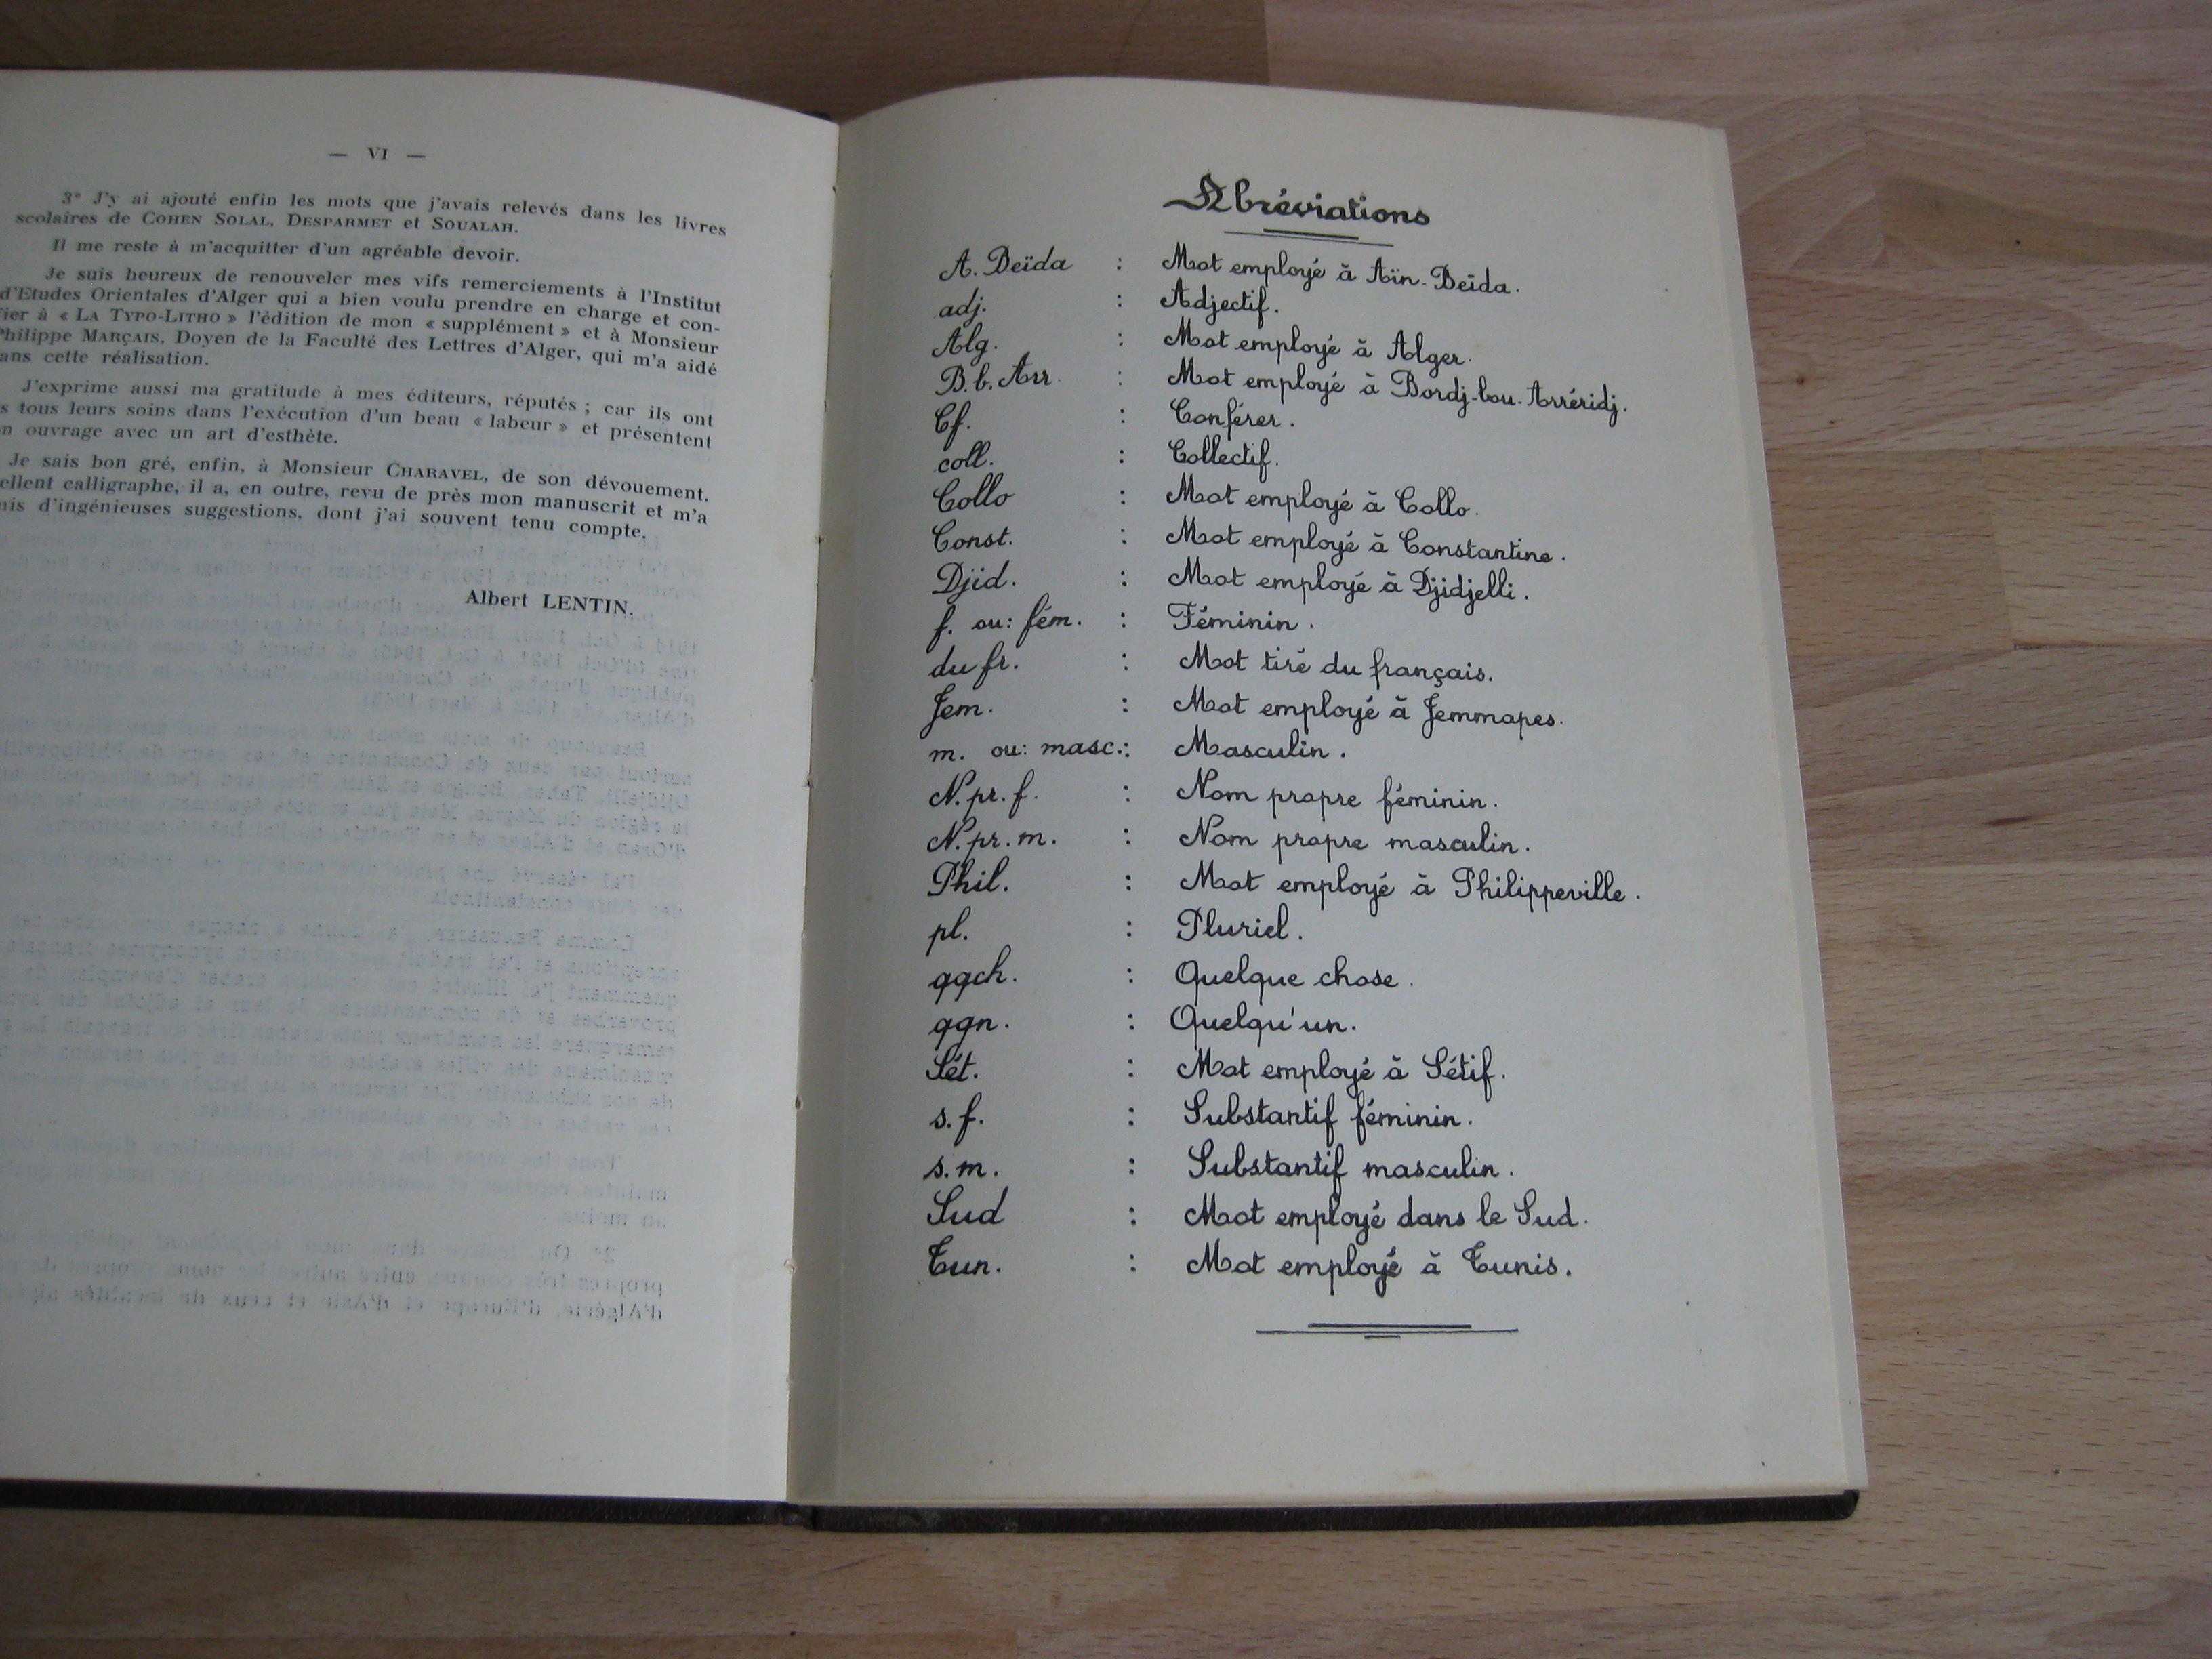 — VI —
3° J'y ai ajouté enfin les mots que j'avais relevés dans les livres
scolaires de COHEN SOLAL, DESPARMET et SOUALAH.
Il me reste à m'acquitter d'un agréable devoir.
Je suis heureux de renouveler mes vifs remerciements à l'Institut
d'Etudes Orientales d'Alger qui a bien voulu prendre en charge et con-
fier à « LA TYPO-LITHO » l'édition de mon « supplément » et à Monsieur
Philippe MARÇAIS, Doyen de la Faculté des Lettres d'Alger, qui m'a aidé
ans cette réalisation.
J'exprime aussi ma gratitude à mes éditeurs, réputés ; car ils ont
s tous leurs soins dans l'exécution d'un beau « labeur » et présentent
n ouvrage avec un art d'esthète.
Je sais bon gré, enfin, à Monsieur CHARAVEL, de son dévouement.
ellent calligraphe, il a, en outre, revu de près mon manuscrit et m'a
mis d'ingénieuses suggestions, dont j'ai souvent tenu compte.
Albert LENTIN.
Abréviations
A. Beïda : Mot employé à Aïn-Beïda.
adj. : Adjectif.
Alg. : Mot employé à Alger.
B.b.Arr. : Mot employé à Bordj-bou-Arréridj.
Cf. : Conférer.
coll. : Collectif.
Collo : Mot employé à Collo.
Const. : Mot employé à Constantine.
Djid. : Mot employé à Djidjelli.
f. ou: fém. : Féminin.
du fr. : Mot tiré du français.
Jem. : Mot employé à Jemmapes.
m. ou: masc.: Masculin.
N.pr.f. : Nom propre féminin.
N.pr.m. : Nom propre masculin.
Phil. : Mot employé à Philippeville.
pl. : Pluriel.
qqch. : Quelque chose.
qqn. : Quelqu'un.
Sét. : Mot employé à Sétif.
s.f. : Substantif féminin.
s.m. : Substantif masculin.
Sud : Mot employé dans le Sud.
Tun. : Mot employé à Tunis.